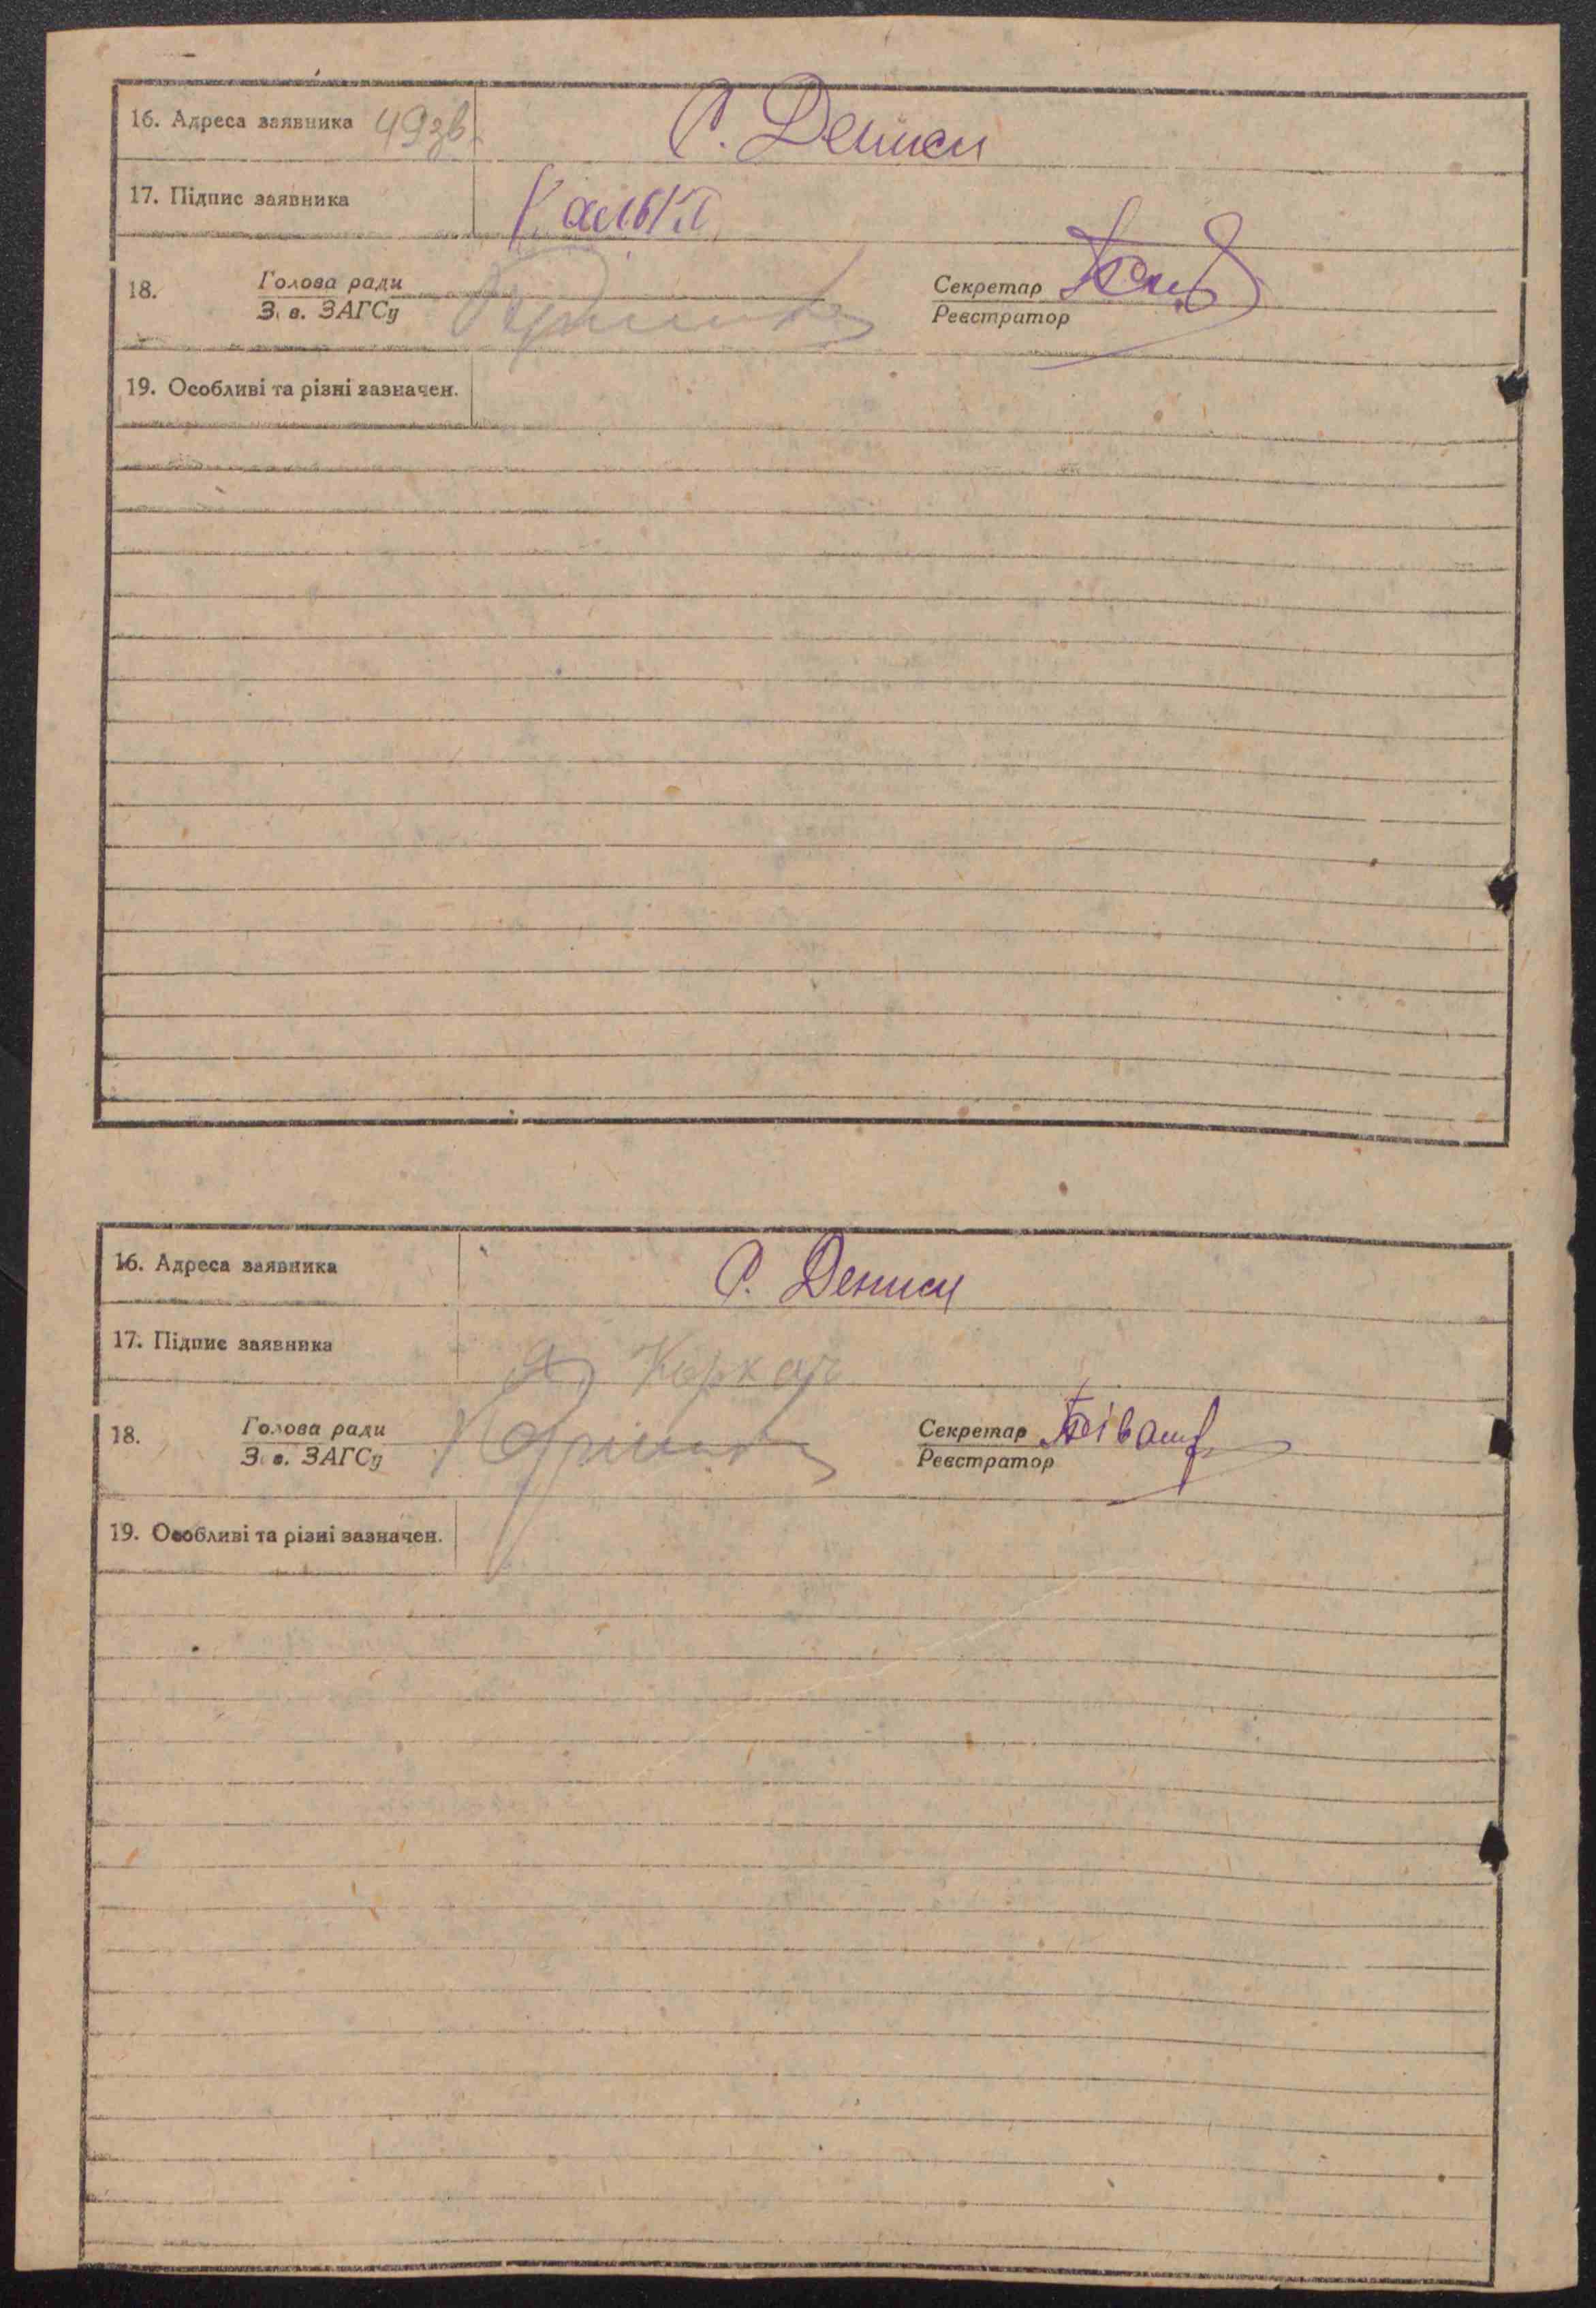 16. Адреса заявника 49зв. С. Дениси
17. Підпис заявника
18. Голова ради Секретар
З. в. ЗАГСу Реєстратор
19. Особливі та різні зазначен.
16. Адреса заявника С. Дениси
17. Підпис заявника Коркач
18. Голова ради Секретар
З. в. ЗАГСу Реєстратор
19. Особливі та різні зазначен.